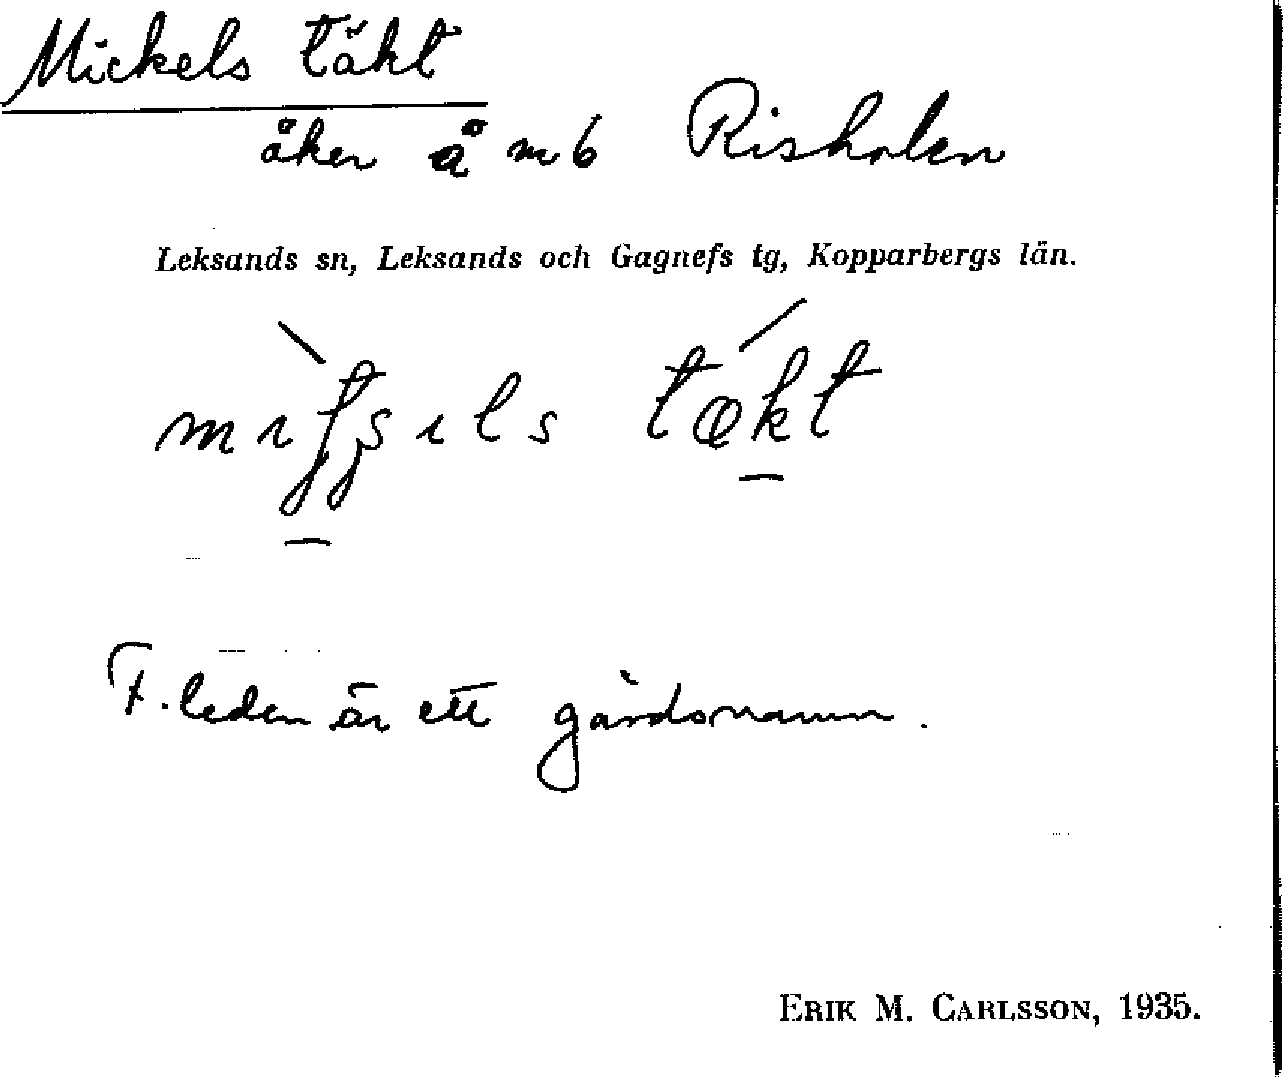 Mickels täkt
åker å m b Risholen
Leksands sn, Leksands och Gagnefs tg, Kopparbergs län.
tækt
F. leden är ett gårdsnamn.
ERIK M. CARLSSON, 1935.